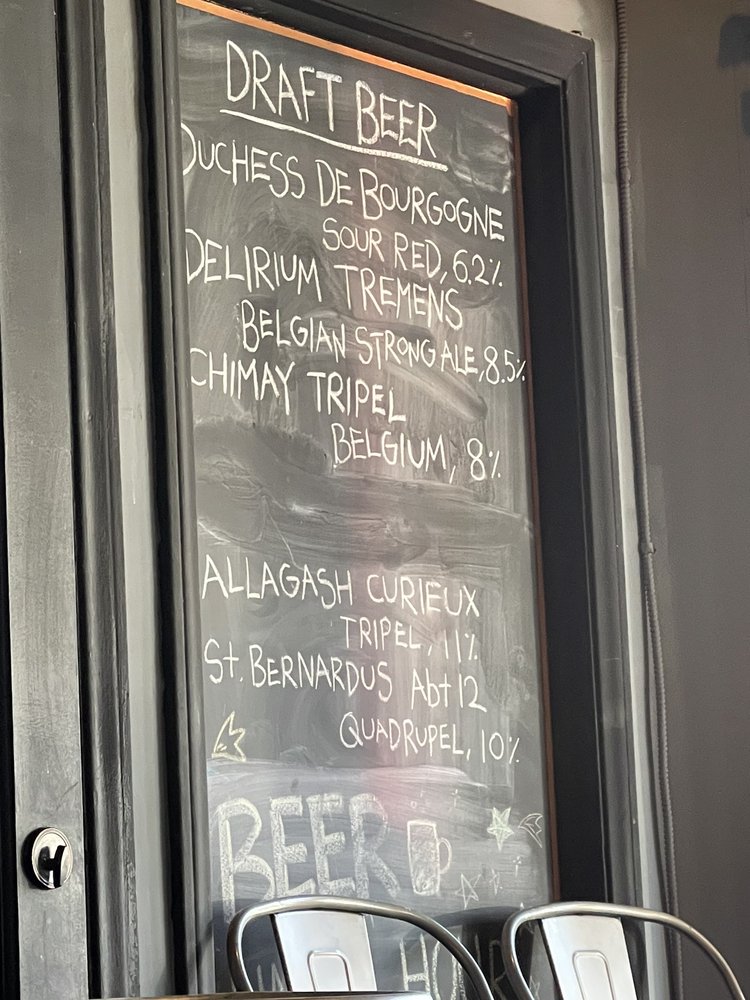 DRAFT BEER
DUCHESS DE BOURGOGNE
SOUR RED, 6.2%
DELIRIUM TREMENS
BELGIAN STRONG ALE, 8.5%
CHIMAY TRIPEL
BELGIUM, 8%
ALLAGASH CURIEUX
TRIPEL, 11%
St. BERNARDUS Abt 12
QUADRUPEL, 10%
BEER